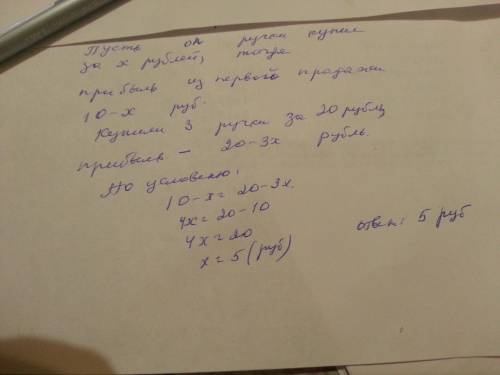 Пусть он ручки купил
за x рублей, тогда
прибыль из первого продажи
10-x руб.
Купили 3 ручки за 20 рубль
прибыль — 20-3x рубль.
По условию:
10-x=20-3x.
4x=20-10
4x=20
x=5(руб)
ответ: 5 руб